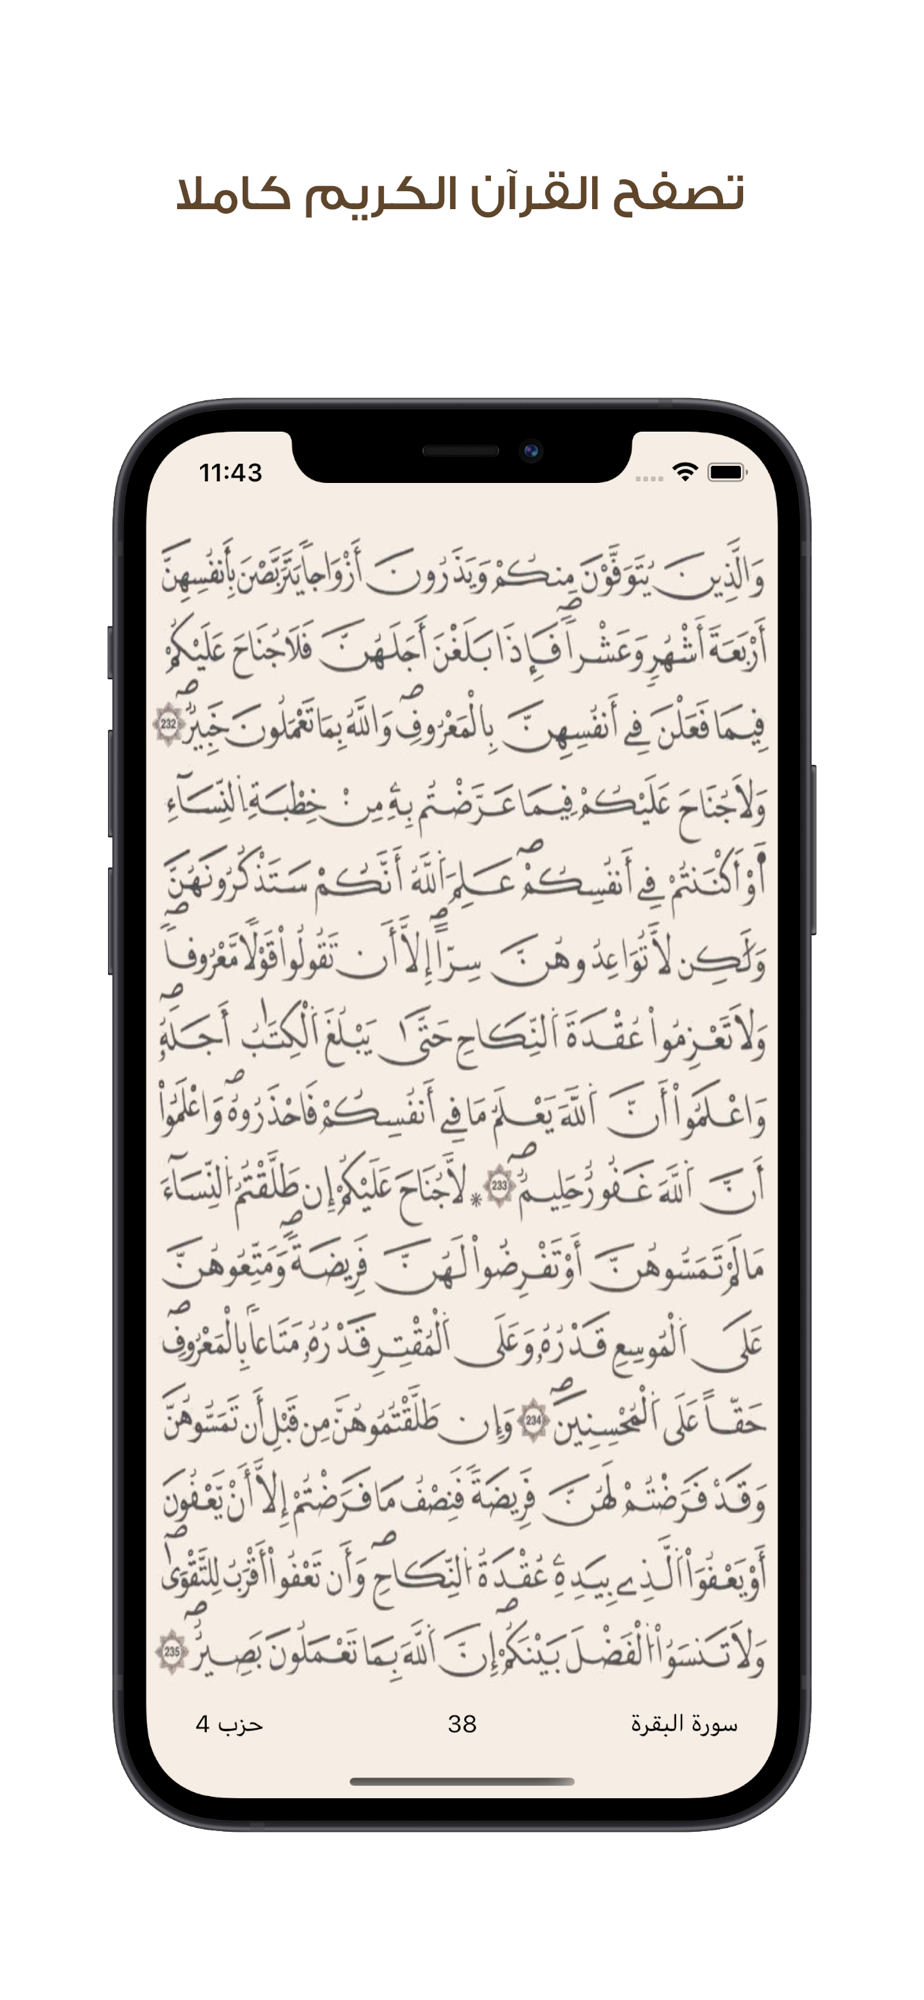 تصفح القرآن الكريم كاملا
11:43
وَالَّذِينَ يُتَوَفَّوْنَ مِنكُمْ وَيَذَرُونَ أَزْوَاجاً يَتَرَبَّصْنَ بِأَنفُسِهِنَّ
أَرْبَعَةَ أَشْهُرٍ وَعَشْراً فَإِذَا بَلَغْنَ أَجَلَهُنَّ فَلَا جُنَاحَ عَلَيْكُمْ
فِيمَا فَعَلْنَ فِي أَنفُسِهِنَّ بِالْمَعْرُوفِ وَاللَّهُ بِمَا تَعْمَلُونَ خَبِيرٌ 232
وَلَا جُنَاحَ عَلَيْكُمْ فِيمَا عَرَّضْتُم بِهِ مِنْ خِطْبَةِ النِّسَاءِ
أَوْ أَكْنَنتُمْ فِي أَنفُسِكُمْ عَلِمَ اللَّهُ أَنَّكُمْ سَتَذْكُرُونَهُنَّ
وَلَٰكِن لَّا تُوَاعِدُوهُنَّ سِرّاً إِلَّا أَن تَقُولُواْ قَوْلًا مَّعْرُوفاً
وَلَا تَعْزِمُواْ عُقْدَةَ النِّكَاحِ حَتَّىٰ يَبْلُغَ الْكِتَٰبُ أَجَلَهُ
وَاعْلَمُواْ أَنَّ اللَّهَ يَعْلَمُ مَا فِي أَنفُسِكُمْ فَاحْذَرُوهُ وَاعْلَمُواْ
أَنَّ اللَّهَ غَفُورٌ حَلِيمٌ 233 * لَّا جُنَاحَ عَلَيْكُمْ إِن طَلَّقْتُمُ النِّسَاءَ
مَا لَمْ تَمَسُّوهُنَّ أَوْ تَفْرِضُواْ لَهُنَّ فَرِيضَةً وَمَتِّعُوهُنَّ
عَلَى الْمُوسِعِ قَدْرُهُ وَعَلَى الْمُقْتِرِ قَدْرُهُ مَتَاعاً بِالْمَعْرُوفِ
حَقّاً عَلَى الْمُحْسِنِينَ 234 وَإِن طَلَّقْتُمُوهُنَّ مِن قَبْلِ أَن تَمَسُّوهُنَّ
وَقَدْ فَرَضْتُمْ لَهُنَّ فَرِيضَةً فَنِصْفُ مَا فَرَضْتُمْ إِلَّا أَنْ يَعْفُونَ
أَوْ يَعْفُوَاْ الَّذِي بِيَدِهِ عُقْدَةُ النِّكَاحِ وَأَن تَعْفُواْ أَقْرَبُ لِلتَّقْوَىٰ
وَلَا تَنسَوُاْ الْفَضْلَ بَيْنَكُمْ إِنَّ اللَّهَ بِمَا تَعْمَلُونَ بَصِيرٌ 235
سورة البقرة 38 حزب 4